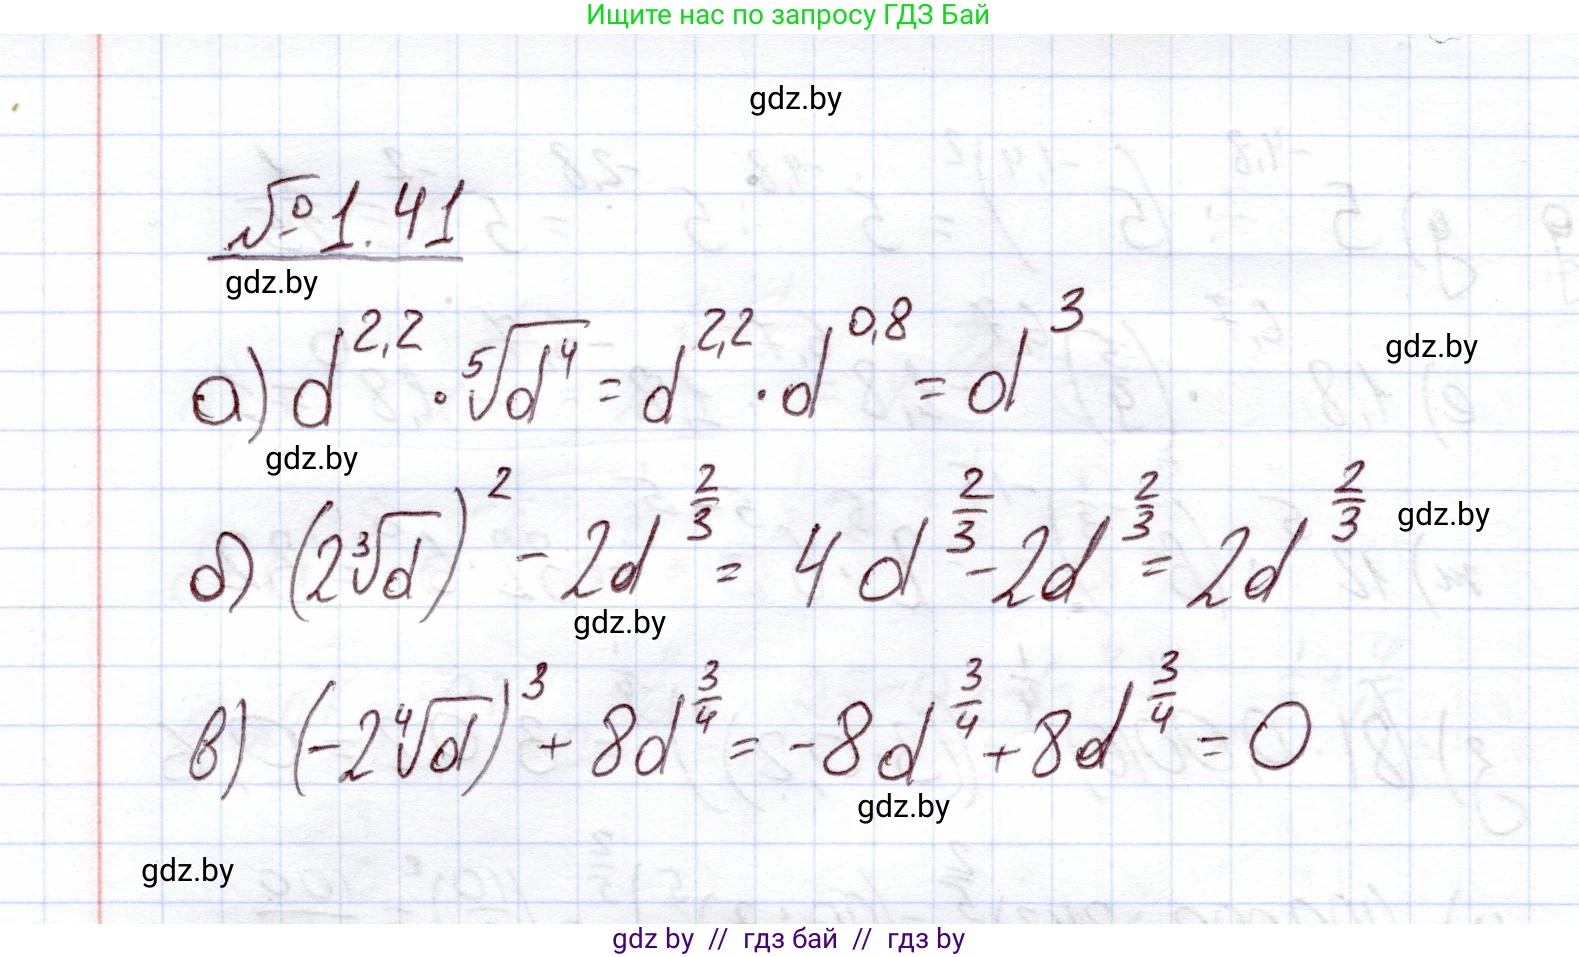 Ищите нас по запросу ГДЗ Бай
gdz.by
№ 1.41
gdz.by
а) d^{2,2} · ⁵√(d⁴) = d^{2,2} · d^{0,8} = d³
gdz.by
gdz.by
б) (2∛d)² - 2d^{2/3} = 4d^{2/3} - 2d^{2/3} = 2d^{2/3}
gdz.by
gdz.by
в) (-2∜d)³ + 8d^{3/4} = -8d^{3/4} + 8d^{3/4} = 0
gdz.by
gdz.by
gdz by // гдз бай // гдз by